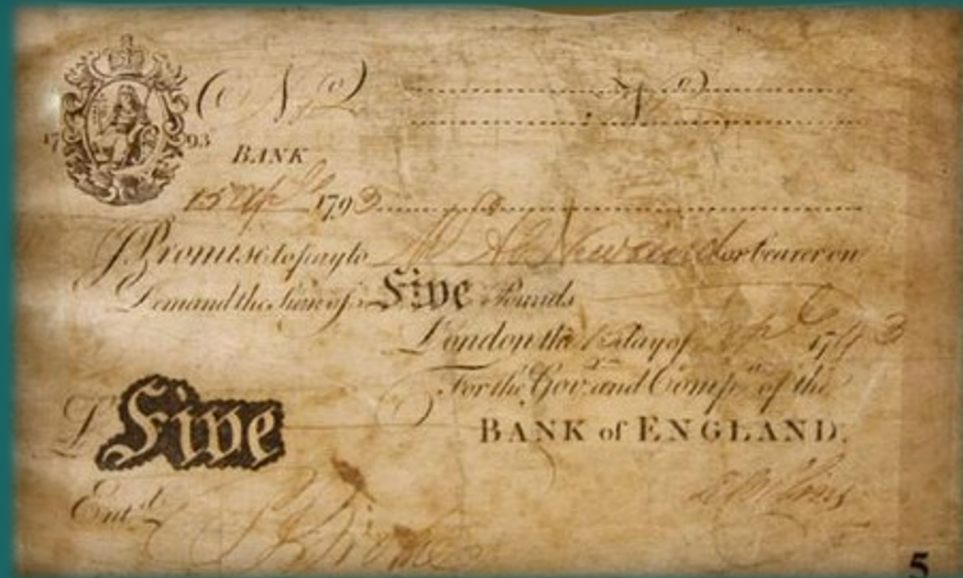 No No
17 93
BANK
15 Apl 1793
I Promise to pay to or bearer on
Demand the Sum of Five Pounds
London the 15 day of Apl 1793
For the Gov.r and Comp.a of the
£ Five
BANK of ENGLAND.
Ent.d
5